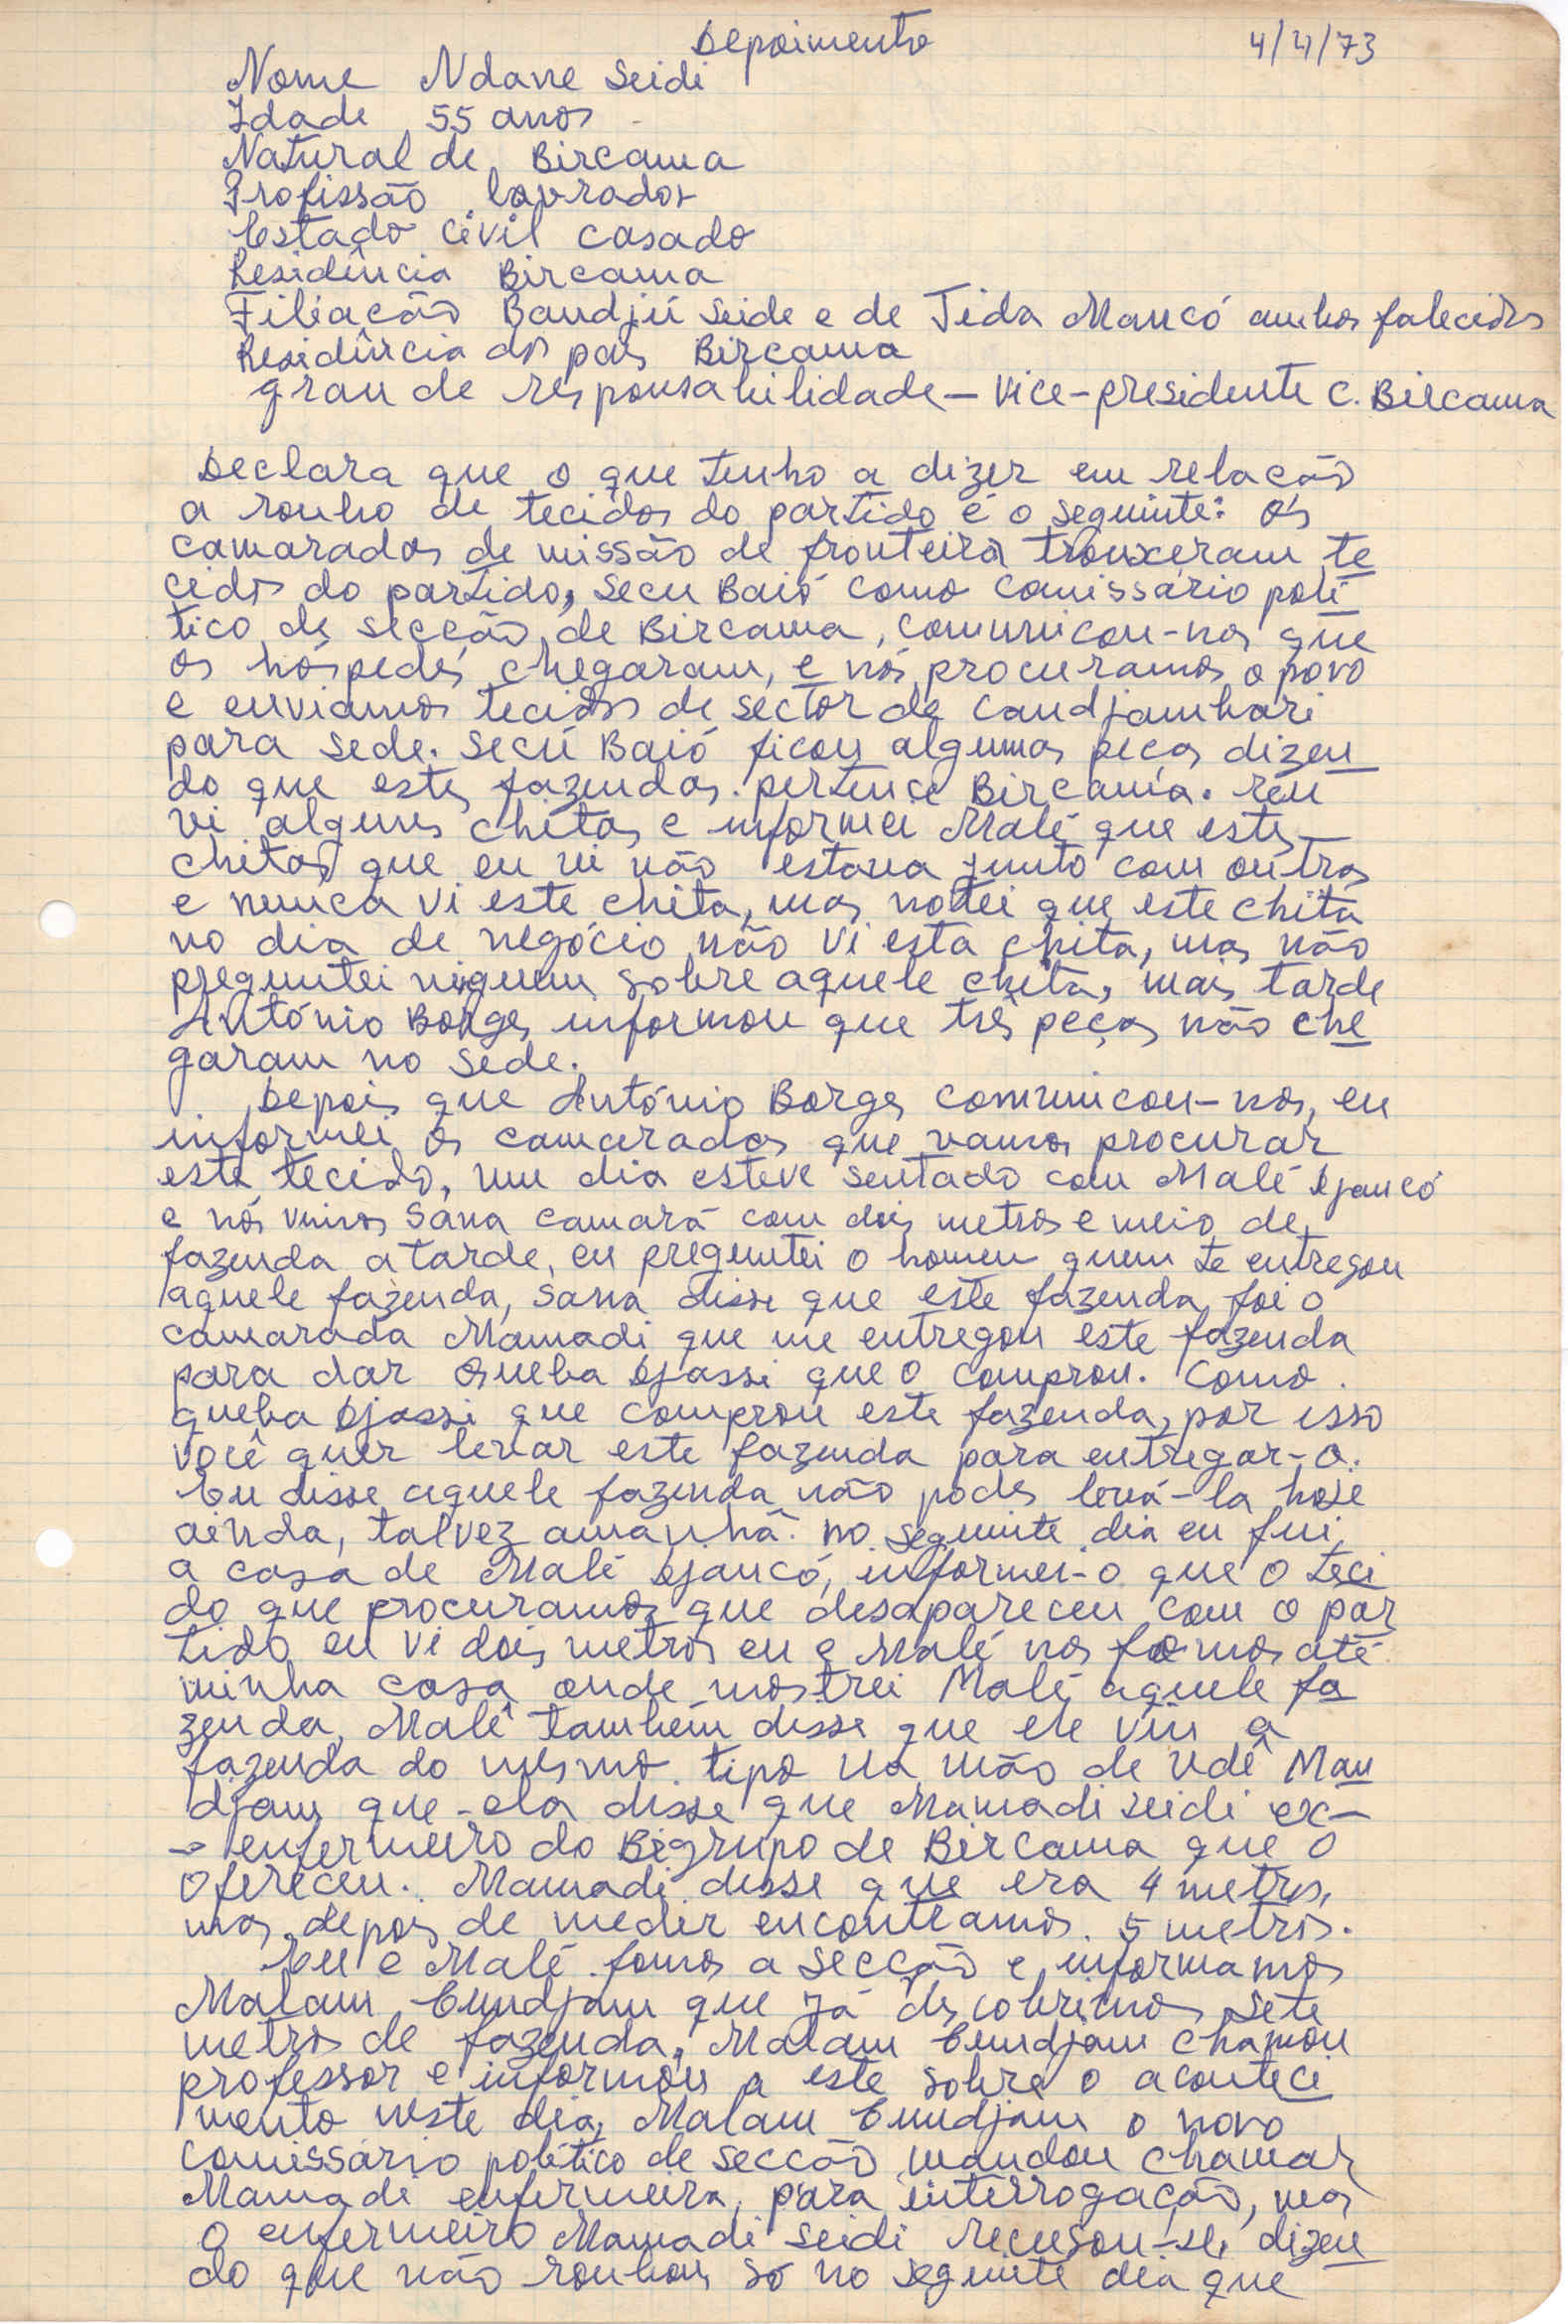 Depoimento 4/4/73
Nome Ndane Seidi
Idade 55 anos
Natural de Bircama
Profissão lavrador
Estado Civil casado
Residência Bircama
Filiação Bandjú Seide e de Tida Mancó ambos falecidos
Residência dos pais Bircama
grau de responsabilidade – Vice-presidente C. Bircama
Declara que o que tenho a dizer em relação
a roubo de tecidos do partido é o seguinte: Os
camaradas de missão de fronteira trouxeram te
cidos do partido, Secu Baió como Comissário polí
tico de secção de Bircama, comunicou-nos que
os hóspedes chegaram, e nós procuramos o povo
e enviamos tecidos de sector de Candjambari
para sede. Secú Baió ficou algumas peças dizen
do que estes fazendas pertence Bircama. eu
vi alguns chitas e informei Malé que estes
chitas que eu vi não estava junto com outras
e nunca vi este chita, mas notei que este chita
no dia de negócio não vi esta chita, mas não
preguntei niguem sobre aquele chita, mais tarde
António Borges informou que três peças não che
garam no sede.
Depois que António Borges comunicou-nos, eu
informei os camaradas que vamos procurar
este tecido, um dia esteve sentado com Malé Djancó
e nós vimos Sana camará com dois metros e meio de
fazenda a tarde, eu preguntei o homem quem te entregou
aquele fazenda, Sana disse que este fazenda foi o
camarada Mamadi que me entregou este fazenda
para dar Queba Djassi que o comprou. Como
queba Djassi que comprou este fazenda, por isso
você quer levar este fazenda para entregar-o.
Eu disse aquele fazenda não podes levá-la hoje
ainda, talvez amanhã. no seguinte dia eu fui
a casa de Malé Djancó, informei-o que o teci
do que procuramos que desapareceu com o par
tido eu vi dois metros eu e Malé nos fomos até
minha casa onde mostrei Malé aquele fa
zenda, Malé também disse que ele viu a
fazenda do mesmo tipo na mão de Ndê Man
djam que ela disse que Mamadi Seidi ex-
-enfermeiro do Bigrupo de Bircama que o
ofereceu. Mamadi disse que era 4 metros,
mas depois de medir encontramos 5 metros.
Eu e Malé fomos a secção e informamos
Malam Cundjam que já descobrimos sete
metros de fazenda, Malam Cundjam chamou
professor e informou a este sobre o aconteci
mento neste dia, Malam Cundjam o novo
comissário político de secção mandou chamar
Mamadi enfermeira, para interrogação, mas
o enfermeiro Mamadi Seidi recusou-se, dizen
do que não roubou só no seguinte dia que